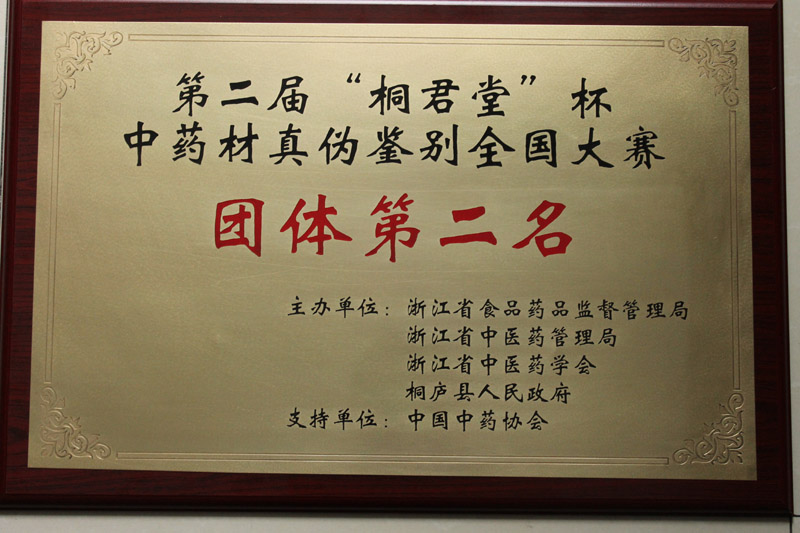 第二届“桐君堂”杯
中药材真伪鉴别全国大赛
团体第二名
主办单位：浙江省食品药品监督管理局
浙江省中医药管理局
浙江省中医药学会
桐庐县人民政府
支持单位：中国中药协会